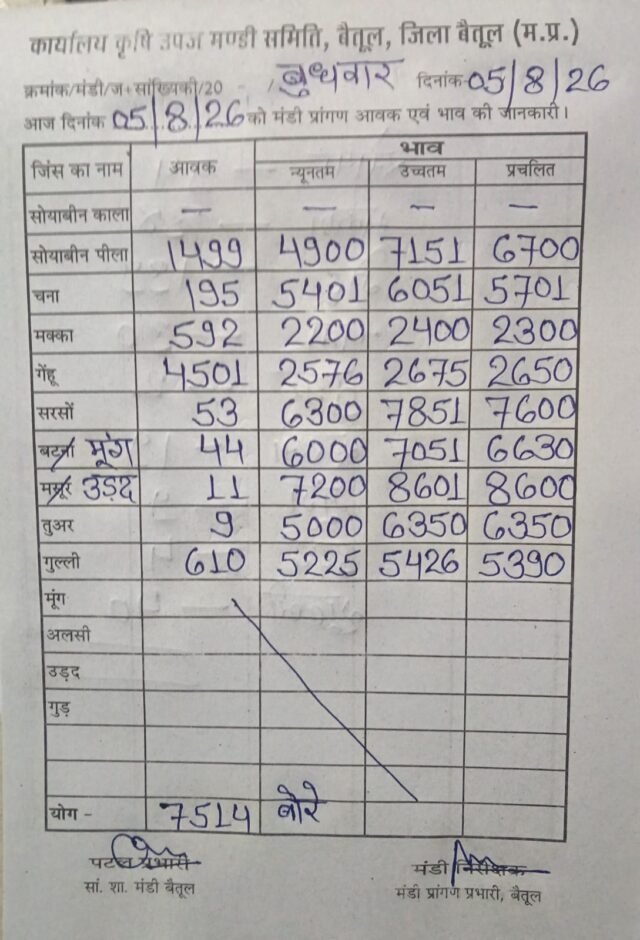 कार्यालय कृषि उपज मण्डी समिति, बैतूल, जिला बैतूल (म.प्र.)
क्रमांक/मंडी/ज+सांख्यिकी/20 - / बुधवार दिनांक 05/8/26
आज दिनांक 05/8/26 को मंडी प्रांगण आवक एवं भाव की जानकारी।
जिंस का नाम आवक भाव
न्यूनतम उच्चतम प्रचलित
सोयाबीन काला — — — —
सोयाबीन पीला 1499 4900 7151 6700
चना 195 5401 6051 5701
मक्का 592 2200 2400 2300
गेंहू 4501 2576 2675 2650
सरसों 53 6300 7851 7600
बटना मूंग 44 6000 7051 6630
मसूर उड़द 11 7200 8601 8600
तुअर 9 5000 6350 6350
गुल्ली 610 5225 5426 5390
मूंग
अलसी
उड़द
गुड़
योग - 7514 बोरे
प्रभारी मंडी निरीक्षक
सां. शा. मंडी बैतूल मंडी प्रांगण प्रभारी, बैतूल